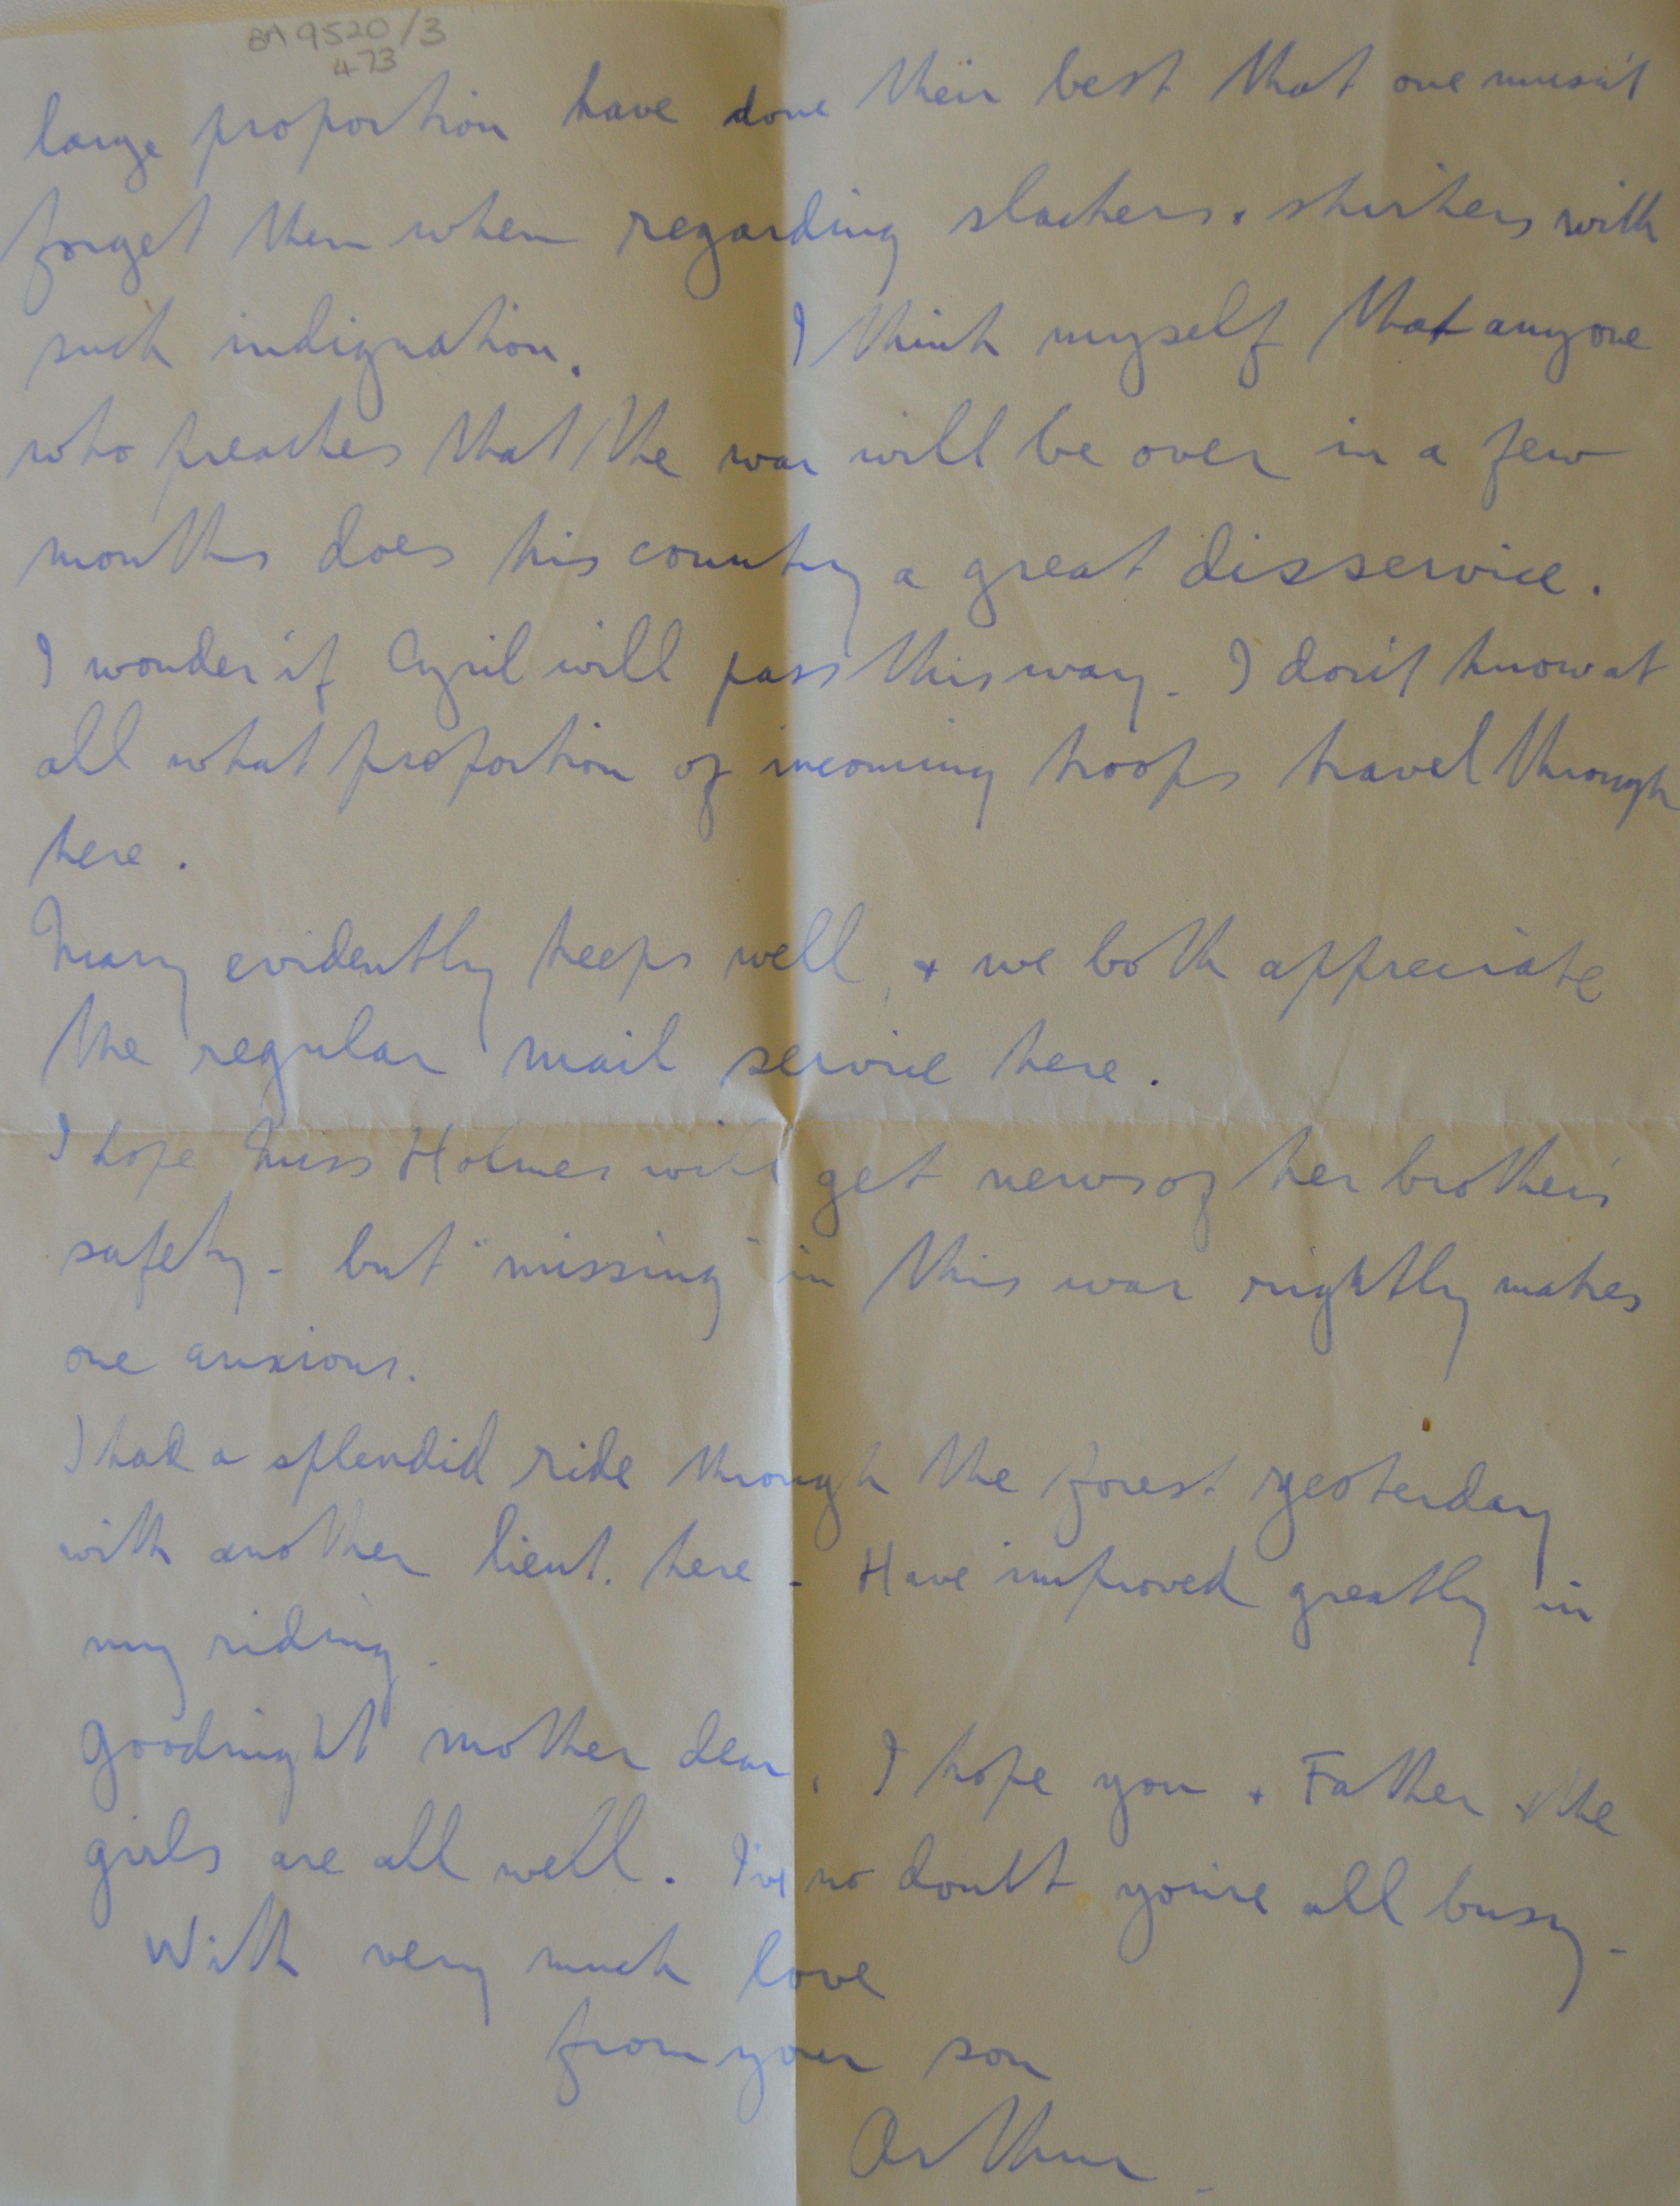 BA 9520/3
473
large proportion have done their best that one musn't
forget them when regarding slackers & shirkers with
such indignation. I think myself that anyone
who preaches that the war will be over in a few
months does his country a great disservice.
I wonder if Cyril will pass this way. I don't know at
all what proportion of incoming troops travel through
here.
Mary evidently keeps well, & we both appreciate
the regular mail service here.
I hope Miss Holmes will get news of her brother's
safety - but "missing" in this war rightly makes
one anxious.
I had a splendid ride through the forest yesterday
with another lieut. here - Have improved greatly in
my riding.
Goodnight mother dear, I hope you & Father & the
girls are all well. I've no doubt you're all busy -
With very much love
from your son
Arthur.